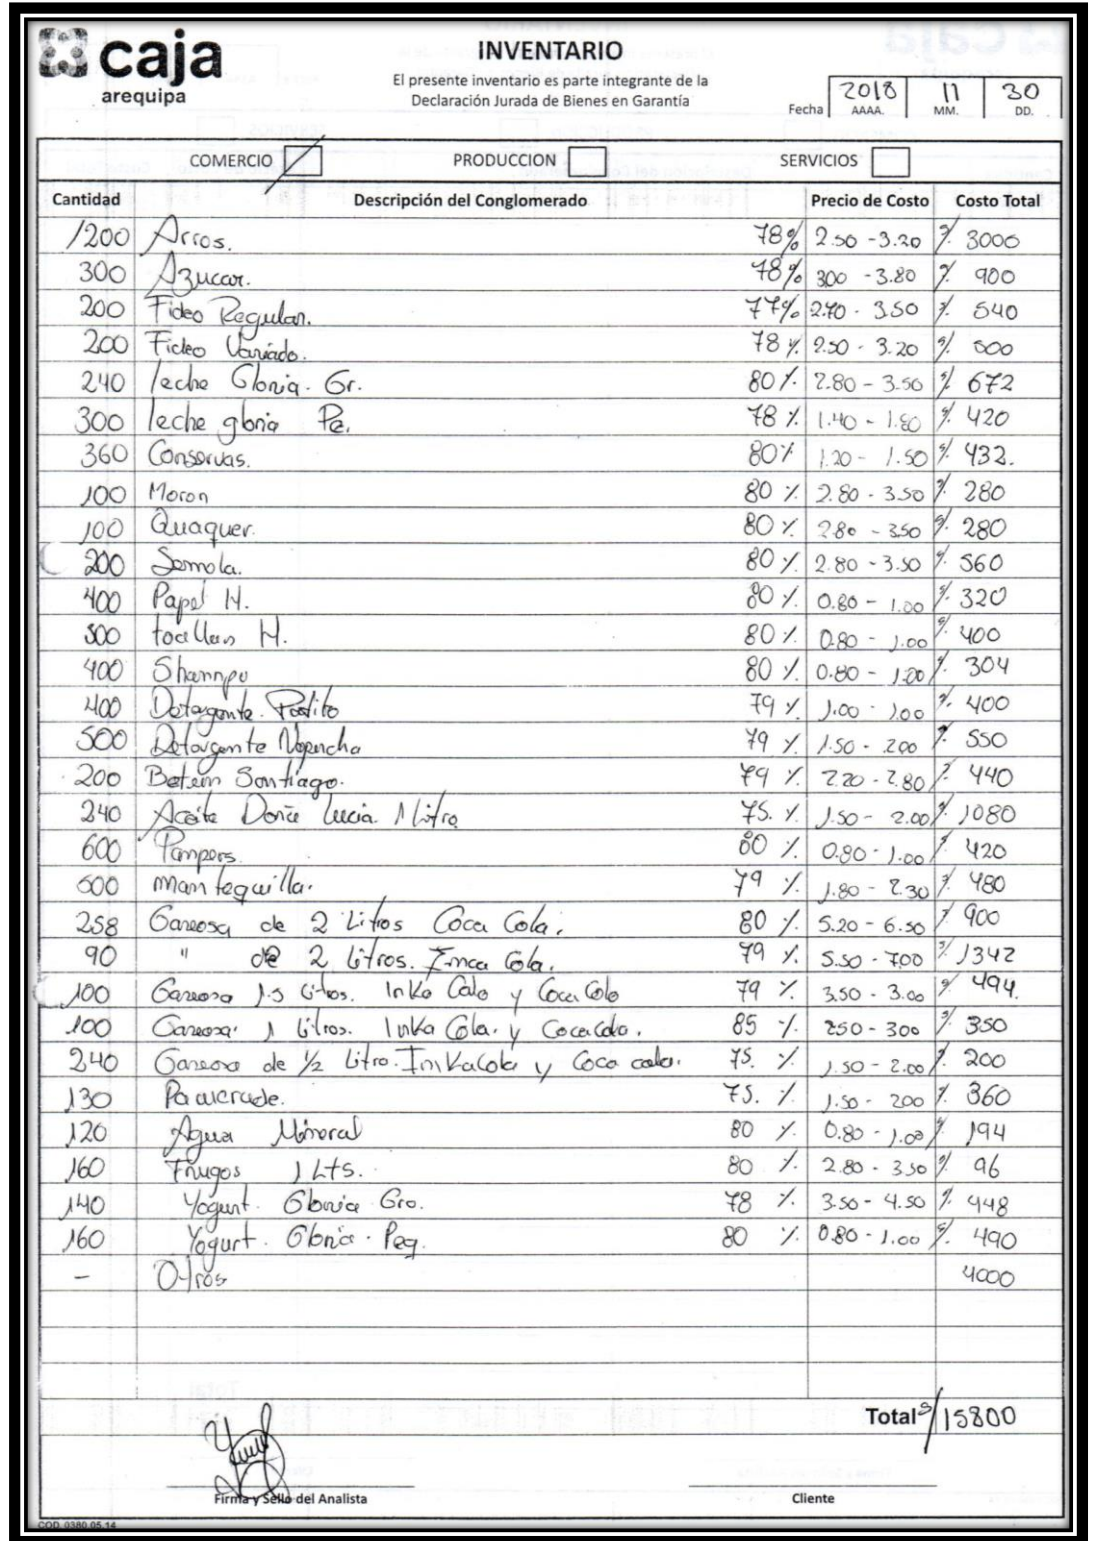 caja
arequipa
INVENTARIO
El presente inventario es parte integrante de la
Declaración Jurada de Bienes en Garantía
Fecha 2018 11 30
AAAA. MM. DD.
COMERCIO PRODUCCION SERVICIOS
Cantidad Descripción del Conglomerado Precio de Costo Costo Total
1200 Arros. 78% 2.50 - 3.20 3000
300 Azucar. 78% 300 - 3.80 900
200 Fideo Regular. 77% 2.70 - 3.50 540
200 Fideo Variado. 78% 2.50 - 3.20 500
240 leche Gloria. Gr. 80% 2.80 - 3.50 672
300 leche gloria Pe. 78% 1.40 - 1.80 420
360 Conservas. 80% 1.20 - 1.50 432.
100 Moron 80% 2.80 - 3.50 280
100 Quaquer. 80% 2.80 - 3.50 280
200 Semola. 80% 2.80 - 3.50 560
400 Papel H. 80% 0.80 - 1.00 320
500 toallas H. 80% 0.80 - 1.00 400
400 Shannpu 80% 0.80 - 1.00 304
400 Detargente 79% 1.00 - 1.00 400
500 Detargente 79% 1.50 - 200 550
200 Betun Santiago. 79% 2.20 - 2.80 440
240 Aceite Doña Lucia 1 litro 75.% 1.50 - 2.00 1080
600 Pampers. 80% 0.80 - 1.00 420
600 mantequilla. 79% 1.80 - 2.30 480
258 Gaseosa de 2 Litros Coca Cola. 80% 5.20 - 6.50 900
90 " de 2 Litros. Inca Cola. 79% 5.50 - 700 1342
100 Gaseosa 1.5 Litros. Inka Cola y Coca Cola 79% 3.50 - 3.00 494.
100 Gaseosa 1 Litros. Inka Cola. y Coca Cola. 85% 250 - 300 350
240 Gaseosa de 1/2 Litro. Inkacola y Coca cola. 75.% 1.50 - 2.00 200
130 Pawerade. 75.% 1.50 - 200 360
120 Agua Mineral 80% 0.80 - 1.00 194
160 Frugos 1 Lts. 80% 2.80 - 3.50 96
140 Yogurt. Gloria Gro. 78% 3.50 - 4.50 448
160 Yogurt. Gloria. Peq. 80% 0.80 - 1.00 490
- Otros 4000
Total S/ 15800
Firma y Sello del Analista Cliente
COD. 0380 05.14